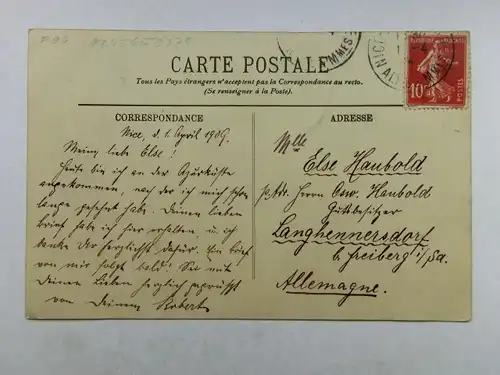 CARTE POSTALE
Tous les Pays étrangers n'acceptent pas la Correspondance au recto.
(Se renseigner à la Poste).
CORRESPONDANCE
Nice, d. 1. April 1909.
Meine liebe Else!
Heute bin ich an der Azurküste
angekommen, nach der ich mich schon
lange gesehnt habe. Deinen lieben
Brief habe ich hier erhalten, u. ich
danke Dir herzlichst dafür. Ein Brief
von mir folgt bald! Sei mit
Deinen Lieben herzlich gegrüsst
von Deinem Robert
ADRESSE
Mlle
Else Haubold
p. Adr. Herrn Osw. Haubold
Gutsbesitzer
Langhennersdorf
b. Freiberg i/Sa.
Allemagne.
NICE
10